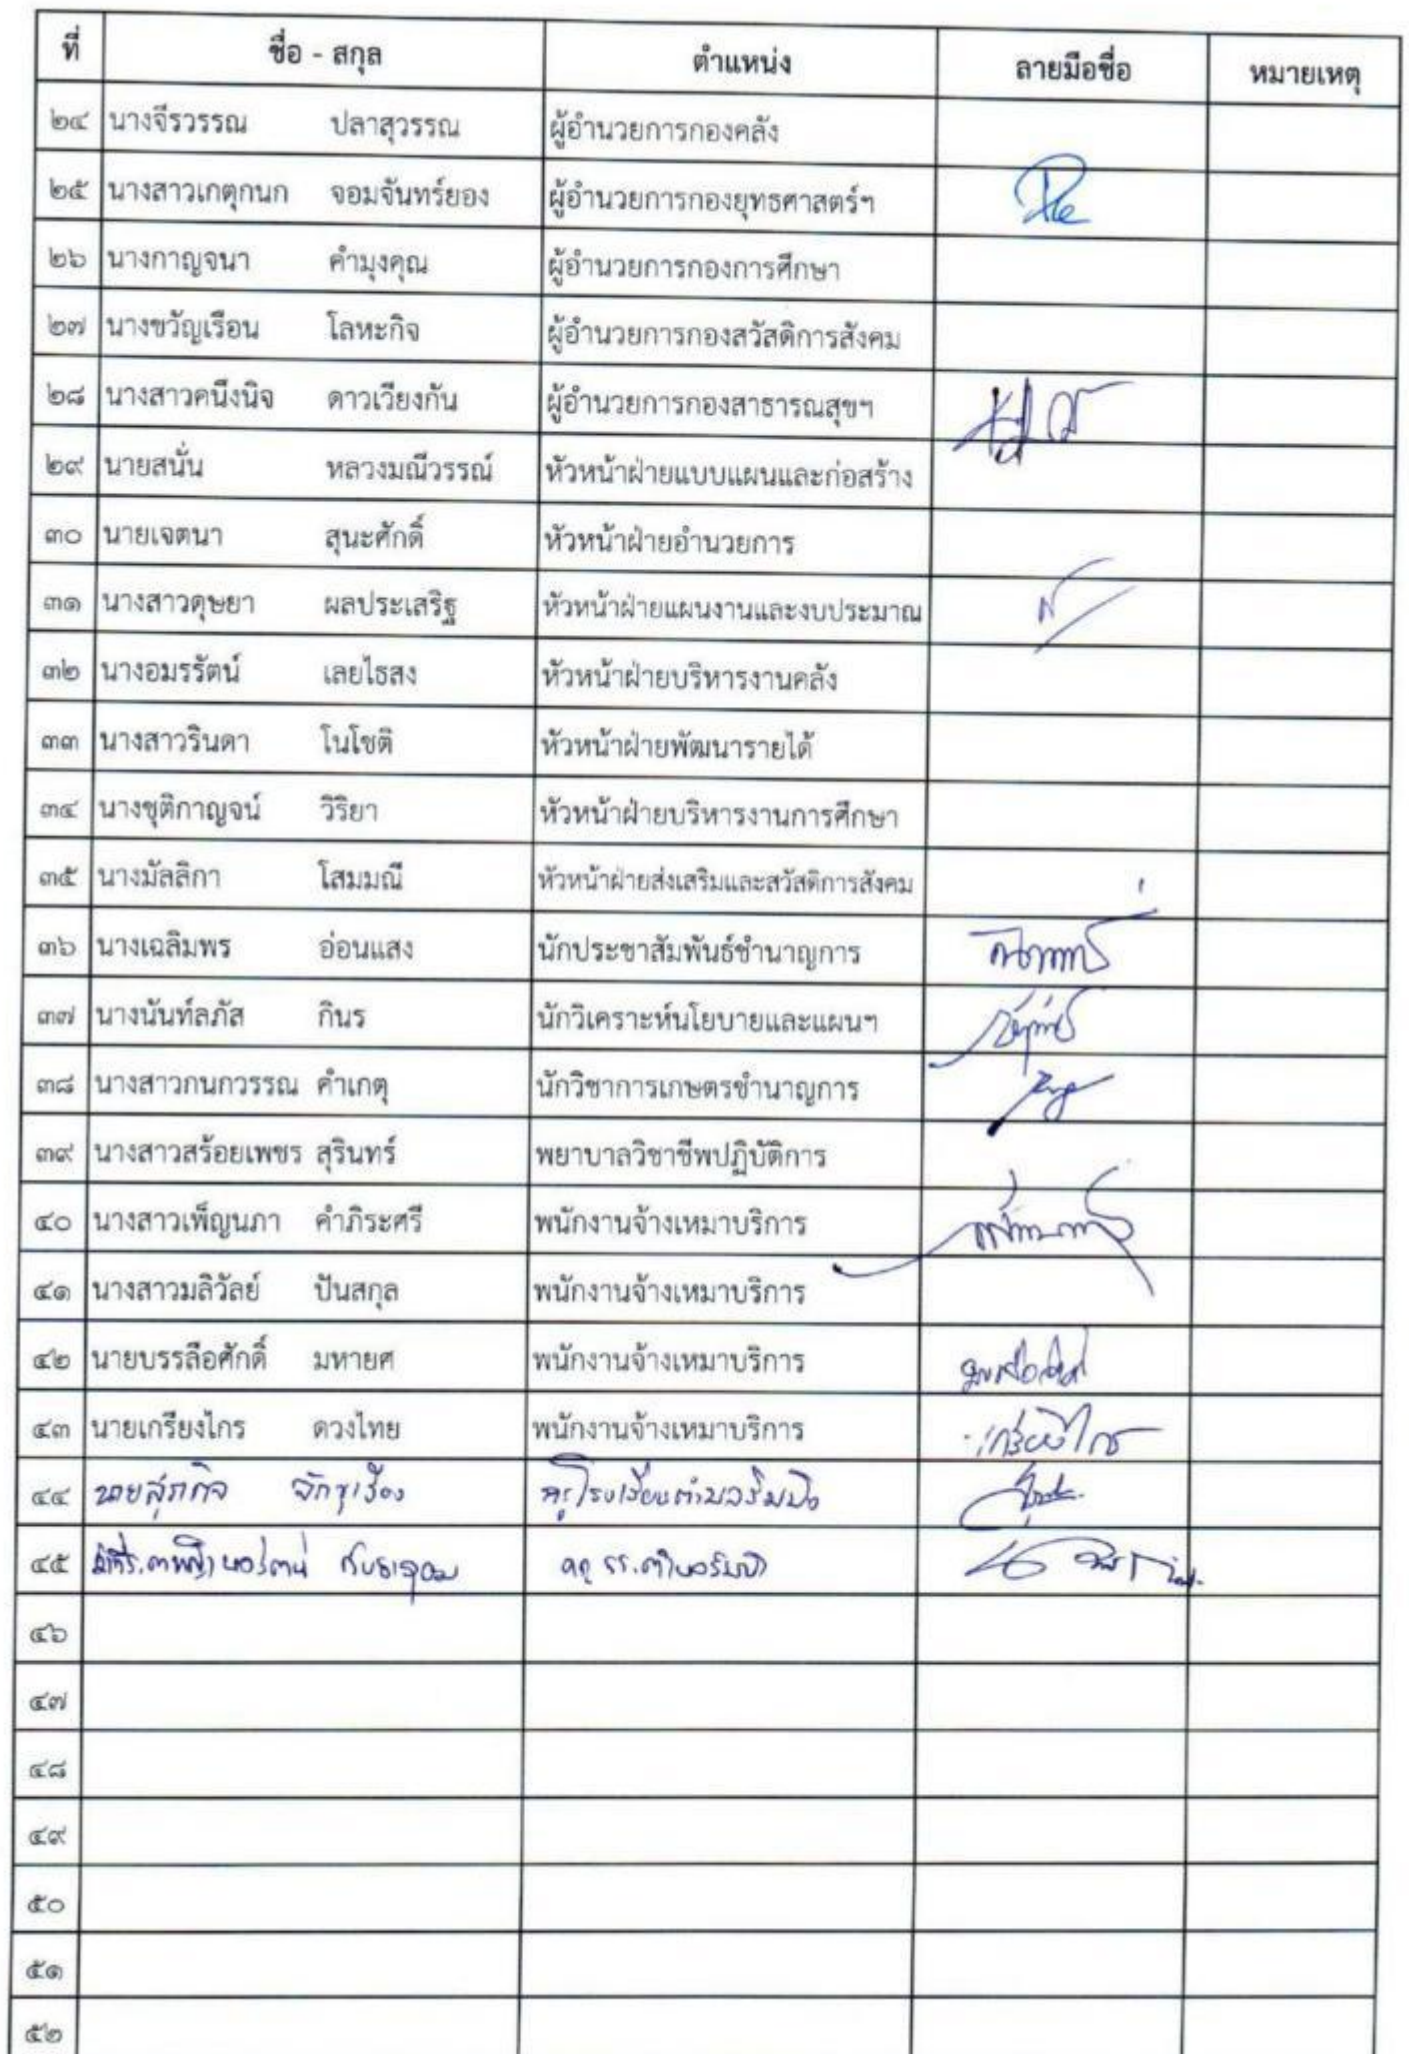 ที่ ชื่อ - สกุล ตำแหน่ง ลายมือชื่อ หมายเหตุ
๒๔ นางจีรวรรณ ปลาสุวรรณ ผู้อำนวยการกองคลัง
๒๕ นางสาวเกตุกนก จอมจันทร์ยอง ผู้อำนวยการกองยุทธศาสตร์ฯ
๒๖ นางกาญจนา คำมุงคุณ ผู้อำนวยการกองการศึกษา
๒๗ นางขวัญเรือน โลหะกิจ ผู้อำนวยการกองสวัสดิการสังคม
๒๘ นางสาวคนึงนิจ ดาวเวียงกัน ผู้อำนวยการกองสาธารณสุขฯ
๒๙ นายสนั่น หลวงมณีวรรณ์ หัวหน้าฝ่ายแบบแผนและก่อสร้าง
๓๐ นายเจตนา สุนะศักดิ์ หัวหน้าฝ่ายอำนวยการ
๓๑ นางสาวดุษยา ผลประเสริฐ หัวหน้าฝ่ายแผนงานและงบประมาณ
๓๒ นางอมรรัตน์ เลยไธสง หัวหน้าฝ่ายบริหารงานคลัง
๓๓ นางสาวรินดา โนโชติ หัวหน้าฝ่ายพัฒนารายได้
๓๔ นางชุติกาญจน์ วิริยา หัวหน้าฝ่ายบริหารงานการศึกษา
๓๕ นางมัลลิกา โสมมณี หัวหน้าฝ่ายส่งเสริมและสวัสดิการสังคม
๓๖ นางเฉลิมพร อ่อนแสง นักประชาสัมพันธ์ชำนาญการ
๓๗ นางนันท์ลภัส กินร นักวิเคราะห์นโยบายและแผนฯ
๓๘ นางสาวกนกวรรณ คำเกตุ นักวิชาการเกษตรชำนาญการ
๓๙ นางสาวสร้อยเพชร สุรินทร์ พยาบาลวิชาชีพปฏิบัติการ
๔๐ นางสาวเพ็ญนภา คำภิระศรี พนักงานจ้างเหมาบริการ
๔๑ นางสาวมลิวัลย์ ปันสกุล พนักงานจ้างเหมาบริการ
๔๒ นายบรรลือศักดิ์ มหายศ พนักงานจ้างเหมาบริการ
๔๓ นายเกรียงไกร ดวงไทย พนักงานจ้างเหมาบริการ เกรียงไกร
๔๔ นายสุรกิจ
๔๕
๔๖
๔๗
๔๘
๔๙
๕๐
๕๑
๕๒